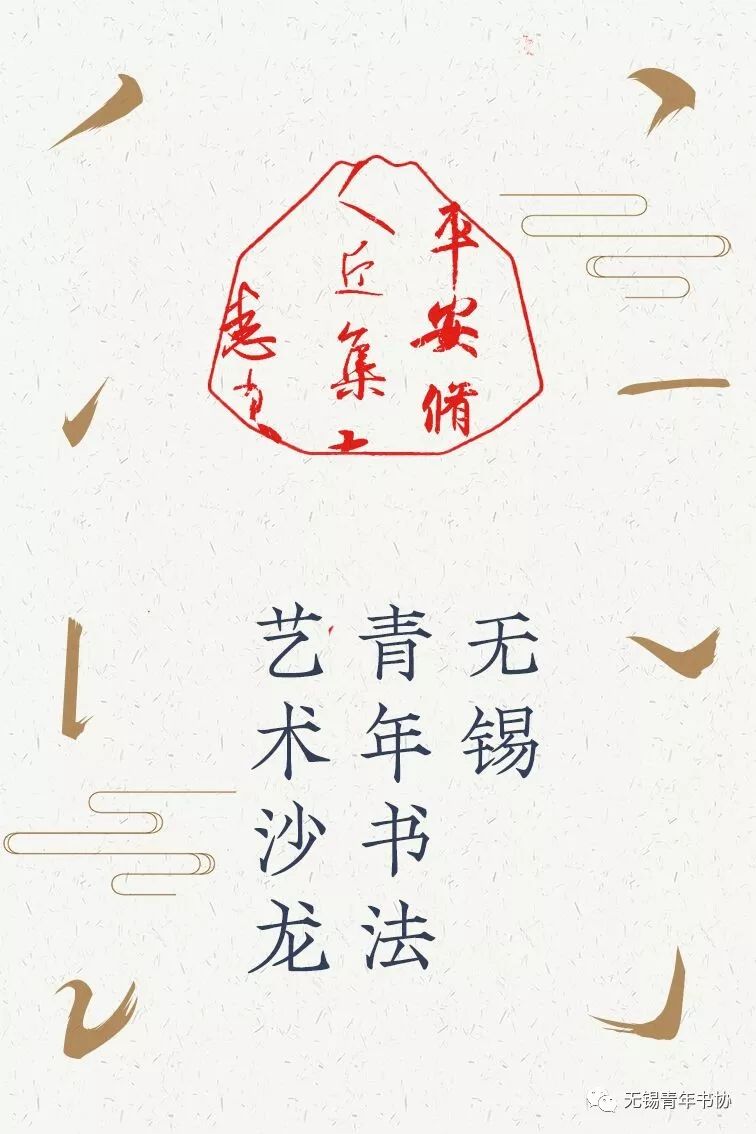 平安脩
集
惠
无锡
青年书法
艺术沙龙
无锡青年书协